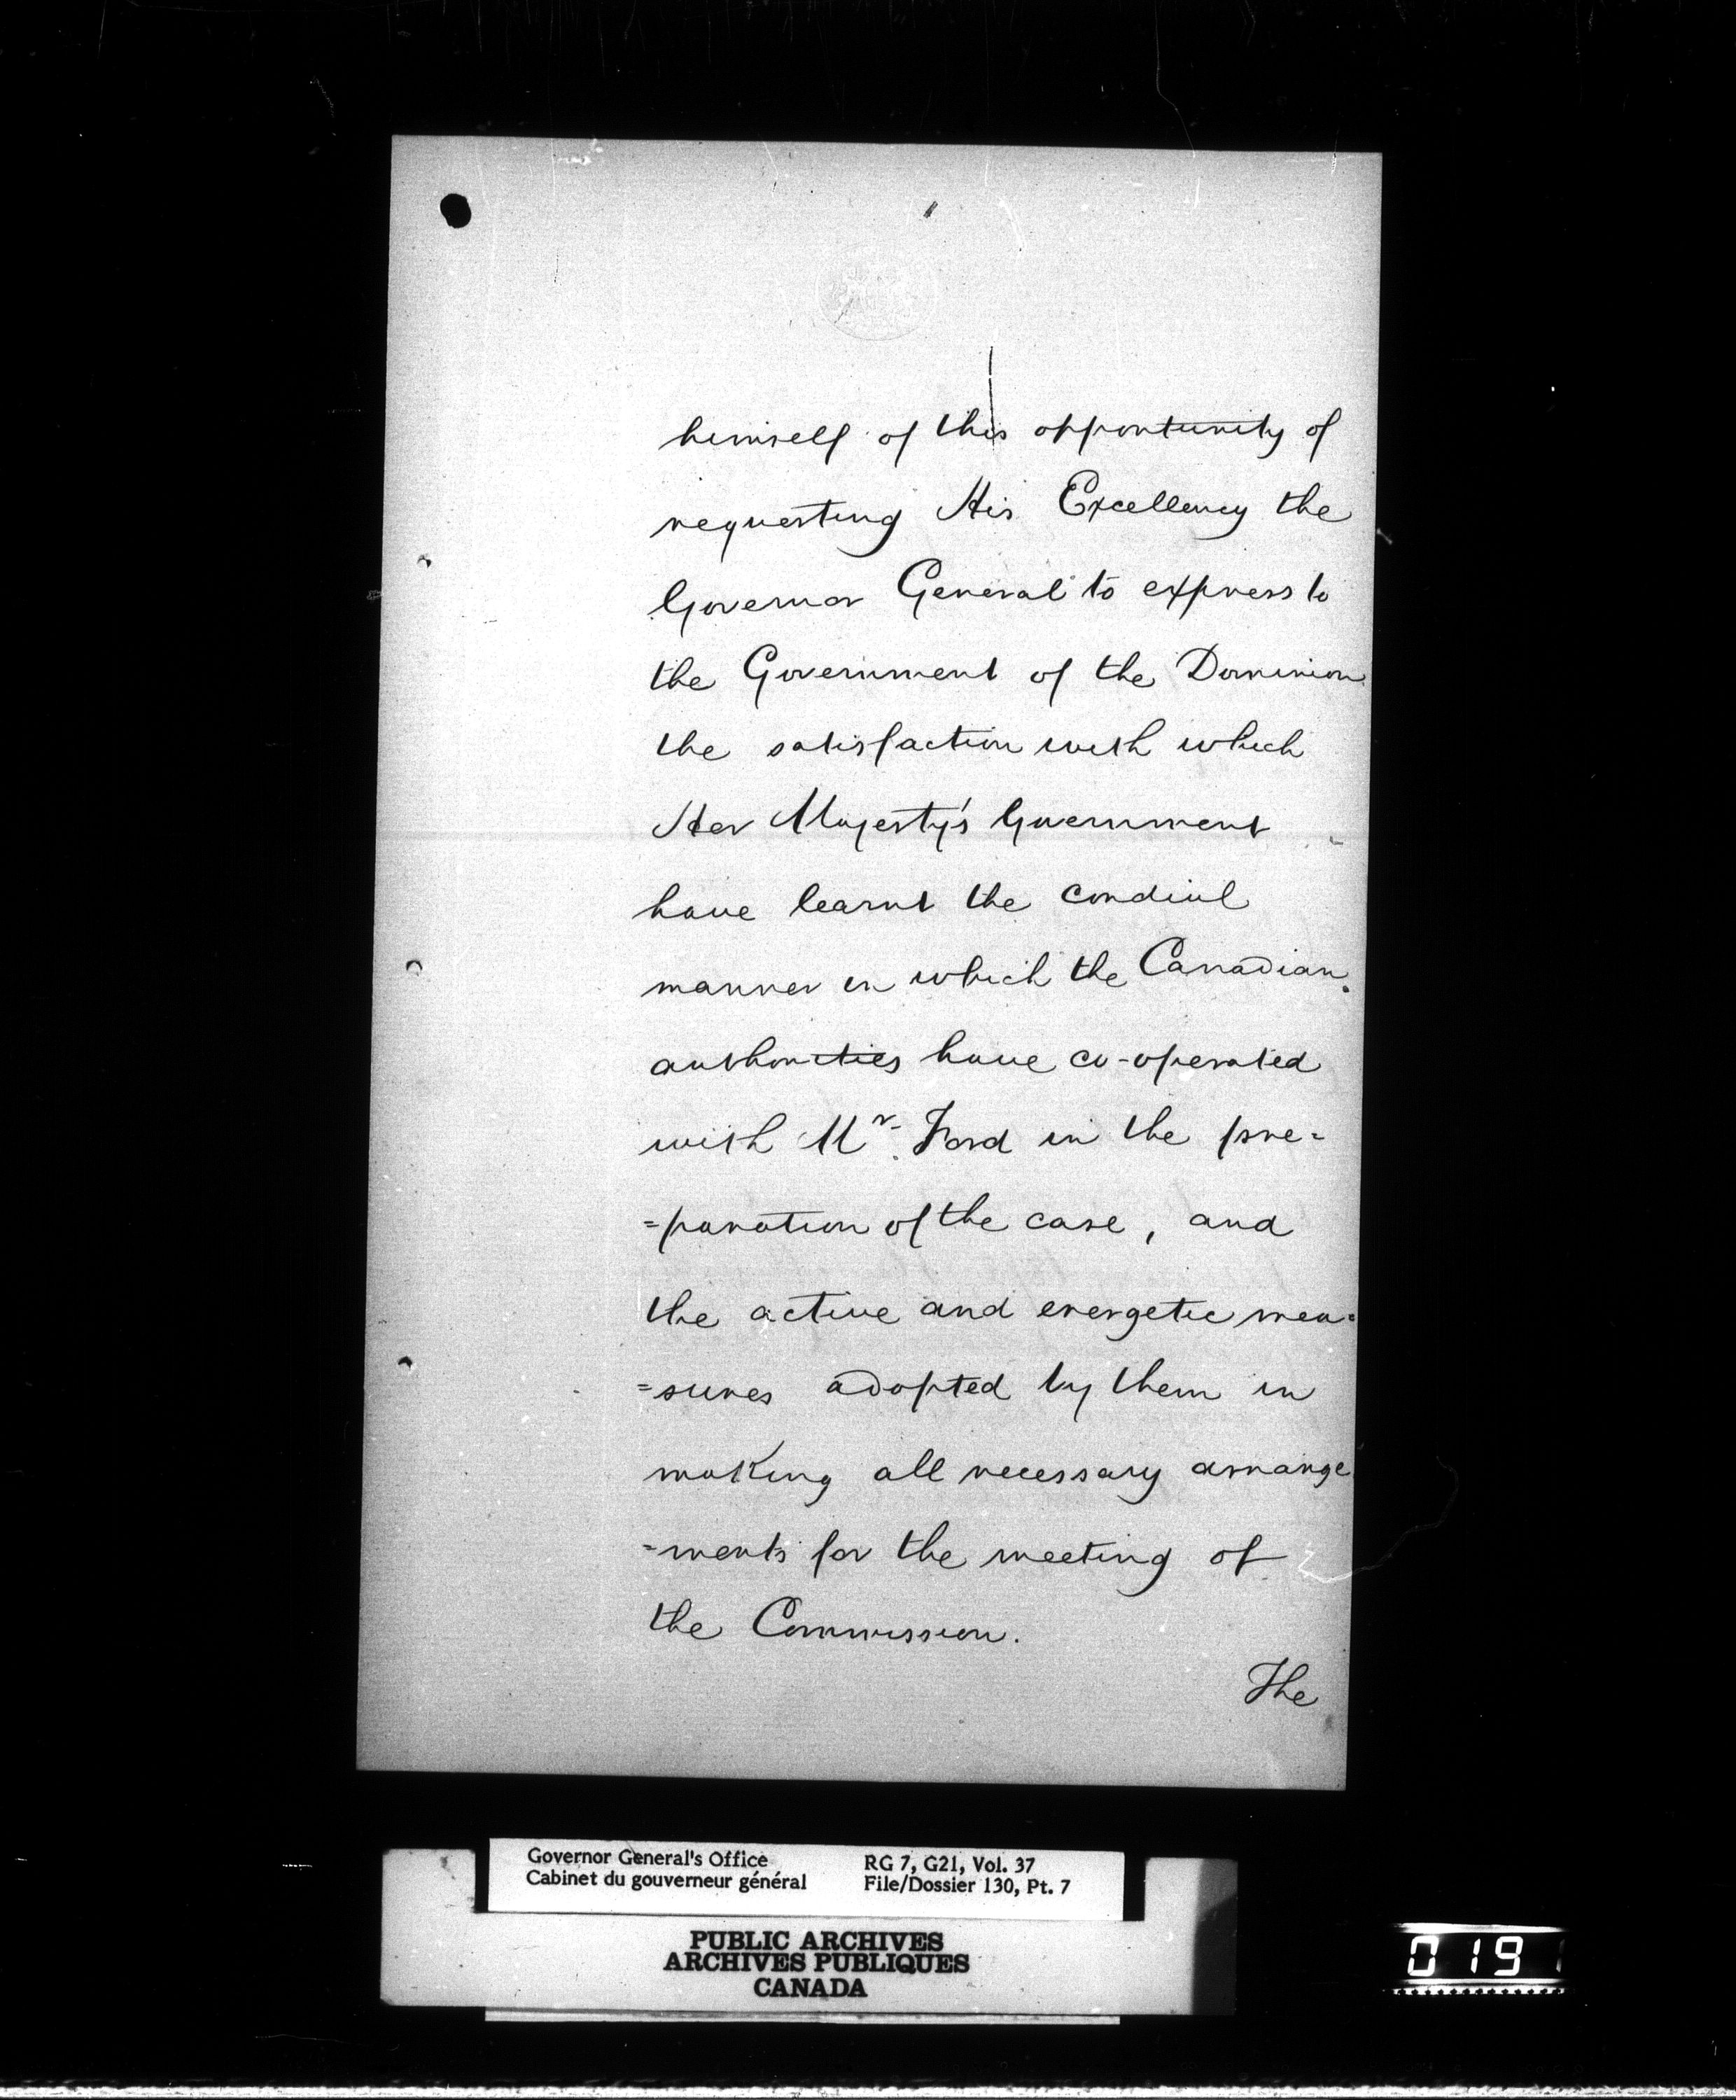 himself of this opportunity of
requesting His Excellency the
Governor General to express to
the Government of the Dominion
the satisfaction with which
Her Majesty's Government
have learnt the cordial
manner in which the Canadian
authorities have co-operated
with Mr. Ford in the pre=
=paration of the case, and
the active and energetic mea=
=sures adopted by them in
making all necessary arrange
=ments for the meeting of
the Commission.
The
Governor General's Office
Cabinet du gouverneur général
RG 7, G21, Vol. 37
File/Dossier 130, Pt. 7
PUBLIC ARCHIVES
ARCHIVES PUBLIQUES
CANADA
0191